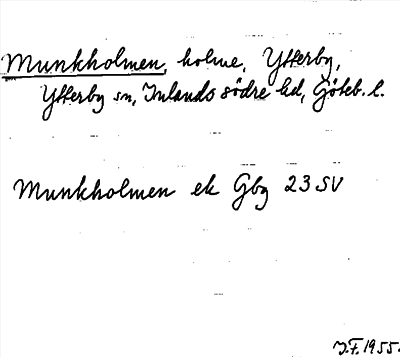 Munkholmen, holme, Ytterby,
Ytterby sn, Inlands södre hd, Göteb. l.
Munkholmen ek Gbg 23 SV
J.F. 1955.